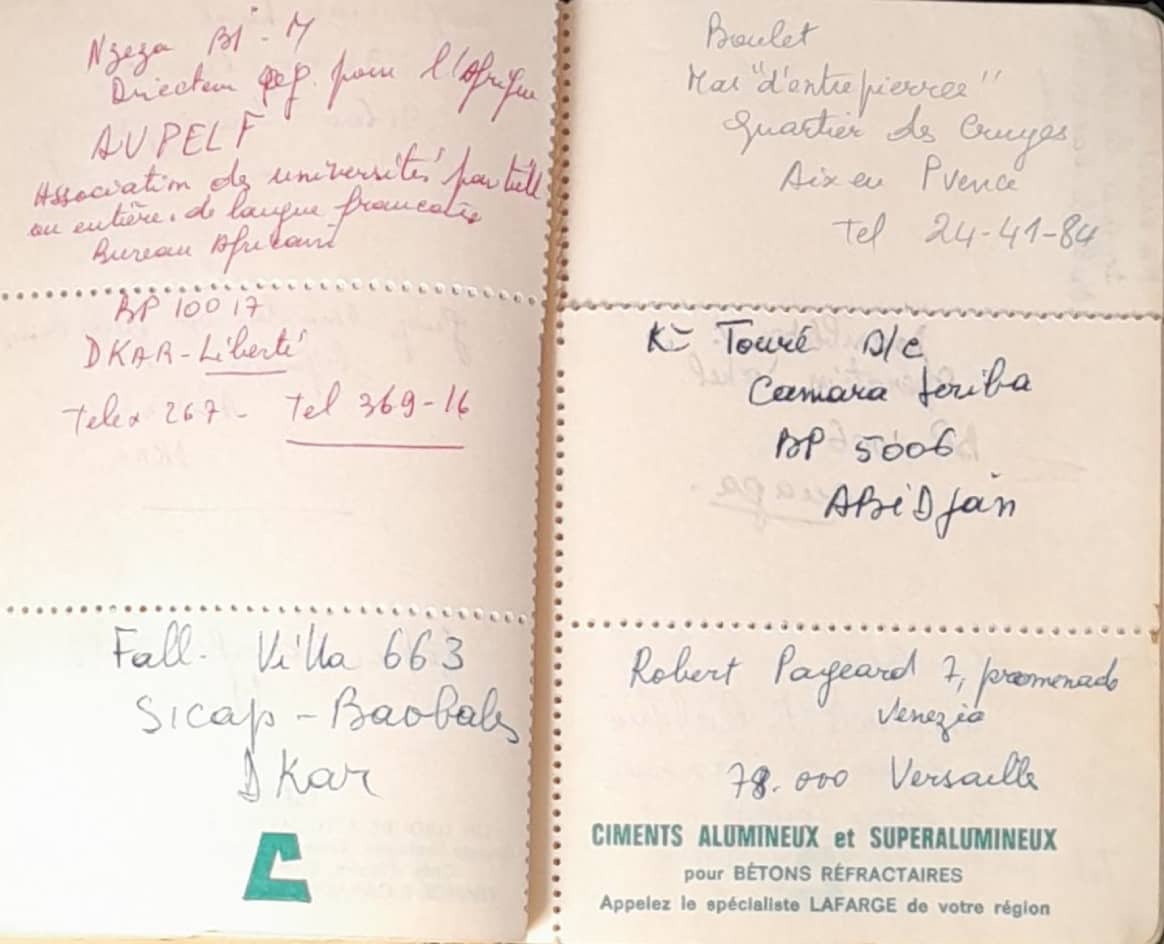 Nzeza Bi - M
Directeur pour l'Afrique
AUPELF
Association des universités partiell
ou entière. de langue francaise
Bureau Africain
BP 10017
DKAR - Liberté
Telex 267 - Tel 369-16
Fall. Villa 663
Sicap - Baobabs
DKar
Boulet
Mas "d'entrepierres"
Quartier des
Aix en Pvence
Tel 24-41-84
K= Touré A/c
Camara Seriba
BP 5006
ABiDjan
Robert Pageard 7, promenade
Venezia
78.000 Versaille
CIMENTS ALUMINEUX et SUPERALUMINEUX
pour BÉTONS RÉFRACTAIRES
Appelez le spécialiste LAFARGE de votre région